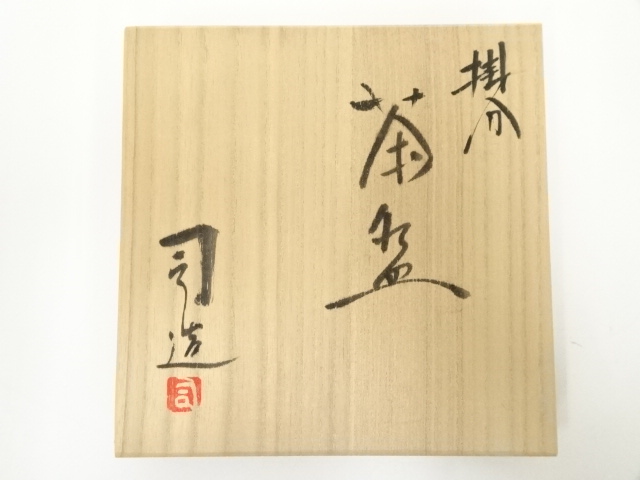 掛分
茶盌
司造
司